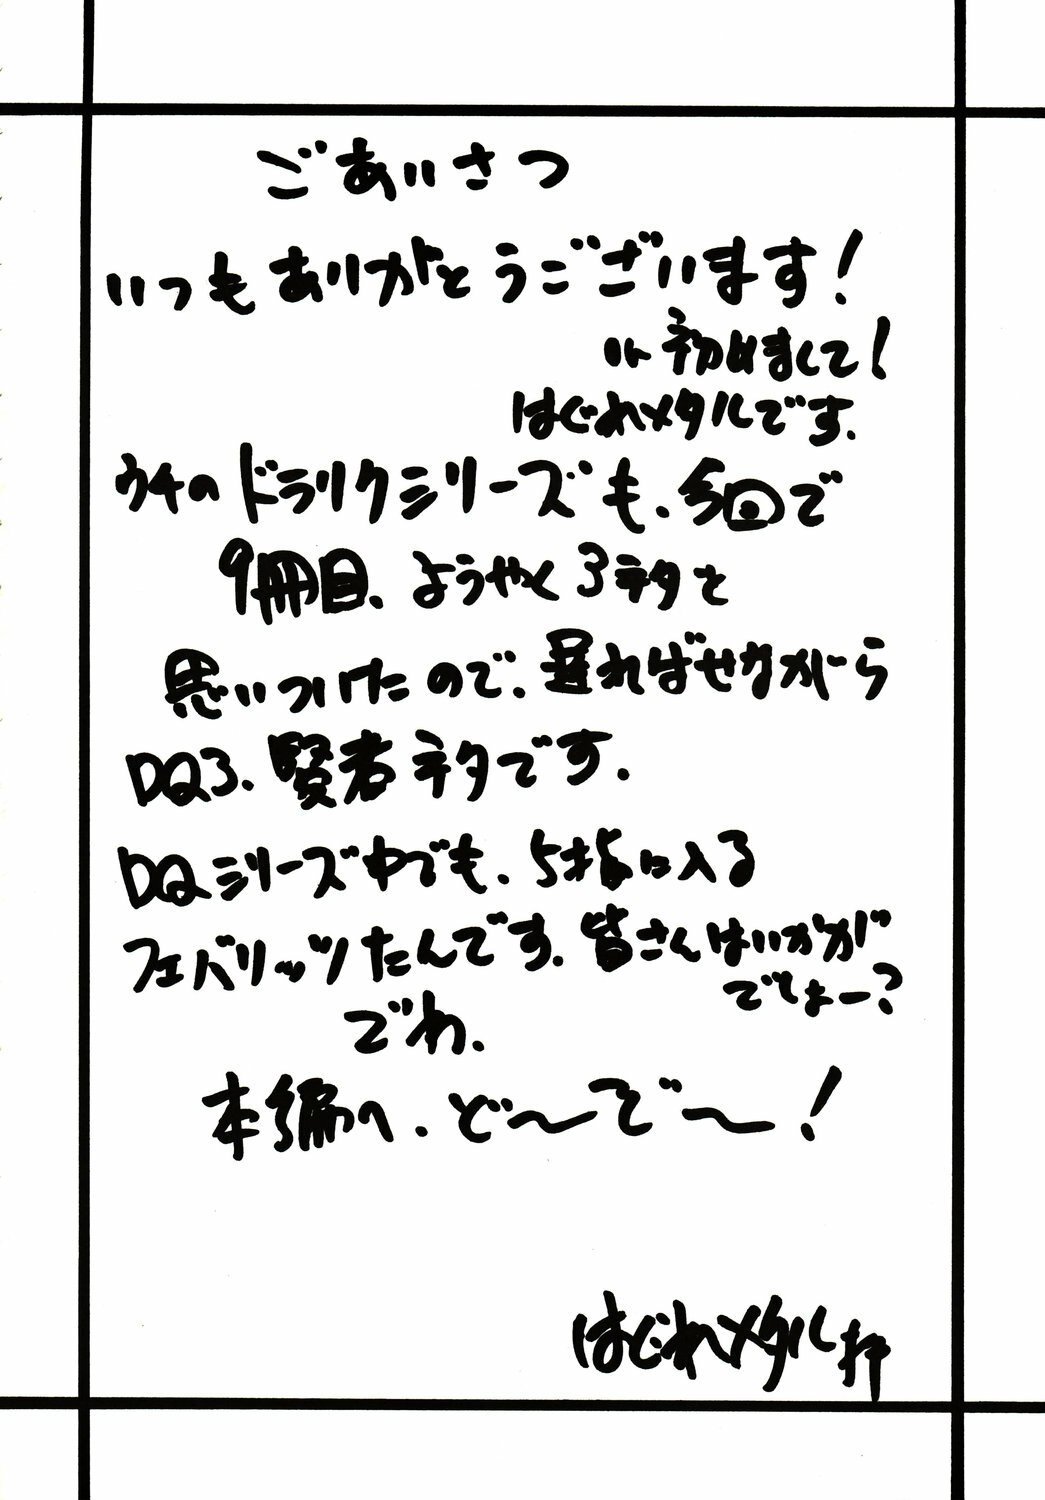 ごあいさつ
いつもありがとうございます!
初めまして!
はぐれメタルです.
ウチのドラクシリーズも、今回で
9冊目、ようやく3ネタと
思いついたので、遅ればせながら
DQ3、賢者ネタです.
DQシリーズ中でも、5指に入る
フェバリッツたんです.皆さんはいかがでしょー?
でわ、
本編へ、ど〜ぞ〜!
はぐれメタル